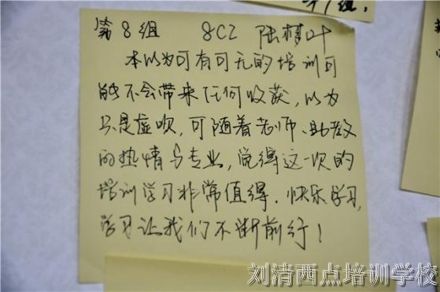 第8组 8C2 陆梦叶
本以为可有可无的培训可
能不会带来任何收获，以为
只是虚吹，可随着老师、助教
的热情与专业，觉得这一次的
培训学习非常值得．快乐学习，
学习让我们不断前行！
刘清西点培训学校